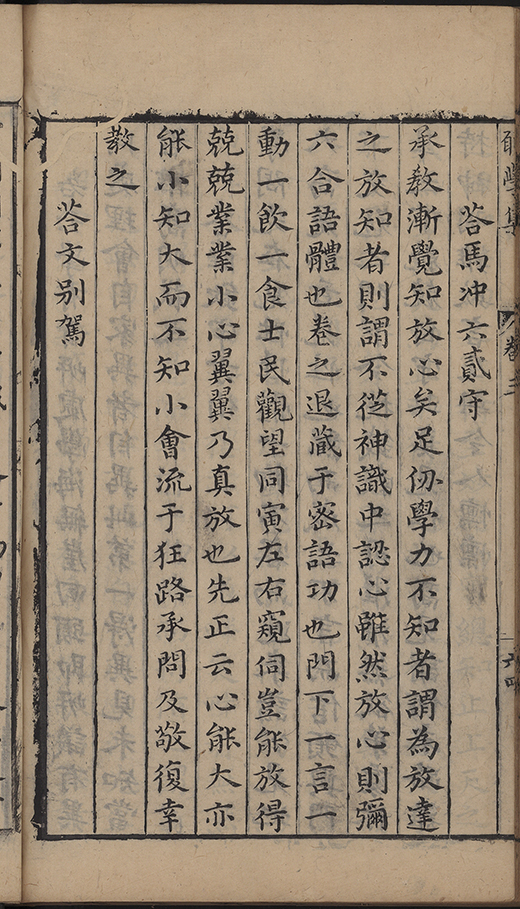 答馬冲六貳守
承教漸覺知放心矣足仞學力不知者謂為放達
之放知者則謂不從神識中認心雖然放心則彌
六合語體也卷之退藏于密語功也門下一言一
動一飲一食士民觀望同寅左右窺伺豈能放得
兢兢業業小心翼翼乃真放也先正云心能大亦
能小知大而不知小會流于狂路承問及敬復幸
教之
答文别駕